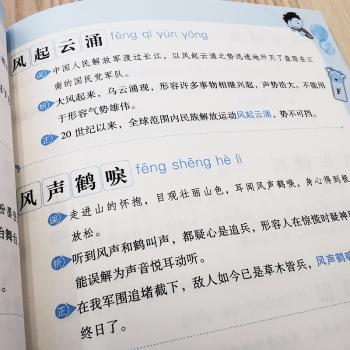 风起云涌 fēng qǐ yún yǒng
误 中国人民解放军渡过长江，以风起云涌之势迅速地歼灭了盘踞在江
南的国民党军队。
析 大风起来，乌云涌现，形容许多事物相继兴起，声势浩大。不能用
于形容气势雄伟。
正 20世纪以来，全球范围内民族解放运动风起云涌，势不可挡。
F
风声鹤唳 fēng shēng hè lì
误 走进山的怀抱，目观壮丽山色，耳闻风声鹤唳，身心得到极
放松。
析 听到风声和鹤叫声，都疑心是追兵，形容人在惊慌时疑神
能误解为声音悦耳动听。
正 在我军围追堵截下，敌人如今已是草木皆兵，风声鹤
终日了。